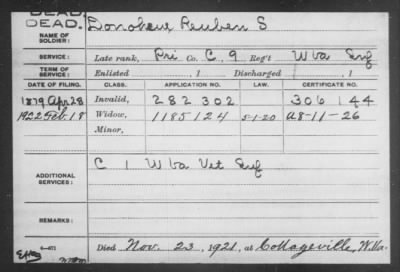 DEAD.
DEAD.
NAME OF SOLDIER: Donohue Reuben S
SERVICE: Late rank, Pri Co. C, 9 Reg't W Va Inf
TERM OF SERVICE: Enlisted , 1 Discharged , 1
DATE OF FILING. CLASS. APPLICATION NO. LAW. CERTIFICATE NO.
1879 Apr 28 Invalid, 282 302 306 144
1922 Feb. 18 Widow, 1185124 5-1-20 A8-11-26
Minor,
ADDITIONAL SERVICES: C 1 W Va Vet Inf
REMARKS:
6-471
Died Nov. 23, 1921, at Cottageville, W. Va.